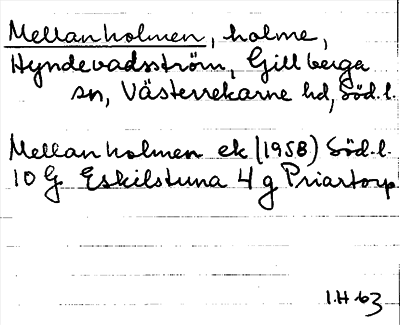 Mellanholmen, holme,
Hyndevadsström, Gillberga
sn, Västerrekarne hd, Söd.l.
Mellanholmen ek (1958) Söd.l.
10 G Eskilstuna 4 g Priartorp
I.H. 63